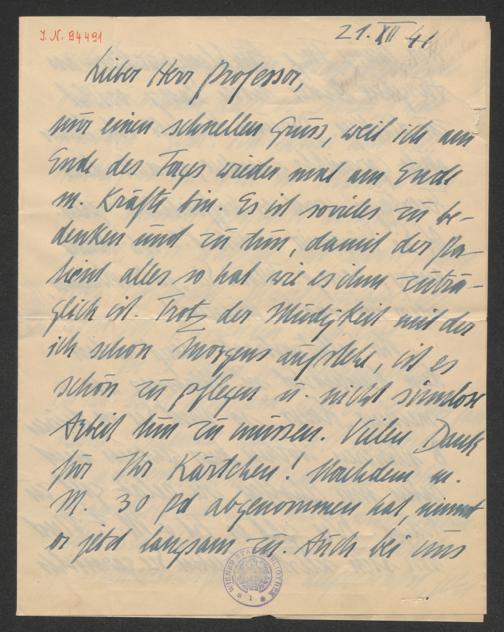 J. N. 94491
21. XII 41
Lieber Herr Professor,
nur einen schnellen Gruss, weil ich am
Ende des Tages wieder mal am Ende
m. Kräfte bin. Es ist soviel zu be-
denken und zu tun, damit der Pa-
tient alles so hat wie es ihm zuträ-
glich ist. Trotz der Müdigkeit mit der
ich schon Morgens aufstehe, ist es
schön zu pflegen u. nicht sinnlose
Arbeit tun zu müssen. Vielen Dank
für Ihr Kärtchen! Nachdem m.
M. 30 Pd abgenommen hat, nimmt
er jetzt langsam zu. Auch bei uns
WIENER STADTBIBLIOTHEK